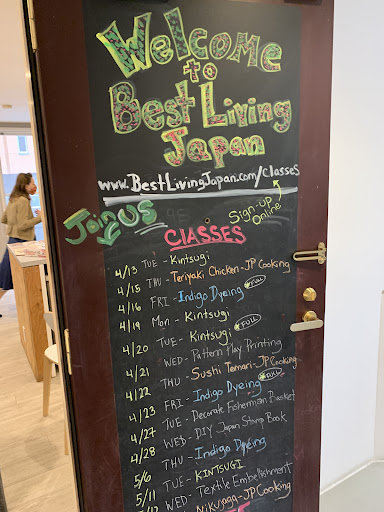 Welcome
to
Best Living
Japan
www.BestLivingJapan.com/classes
Join US
Sign-up
Online
CLASSES
4/13 TUE - Kintsugi
4/15 THU - Teriyaki Chicken - JP Cooking
4/16 FRI - Indigo Dyeing FULL
4/19 Mon - Kintsugi
4/20 TUE - Kintsugi FULL
4/21 WED - Pattern Play Printing
4/22 THU - Sushi Temari - JP Cooking
4/23 FRI - Indigo Dyeing FULL
4/27 TUE - Decorate Fisherman Basket
4/28 WED - DIY Japan Stamp Book
5/6 THU - Indigo Dyeing
5/11 TUE - KINTSUGI
5/12 WED - Textile Embellishment
Nikujaga - JP Cooking